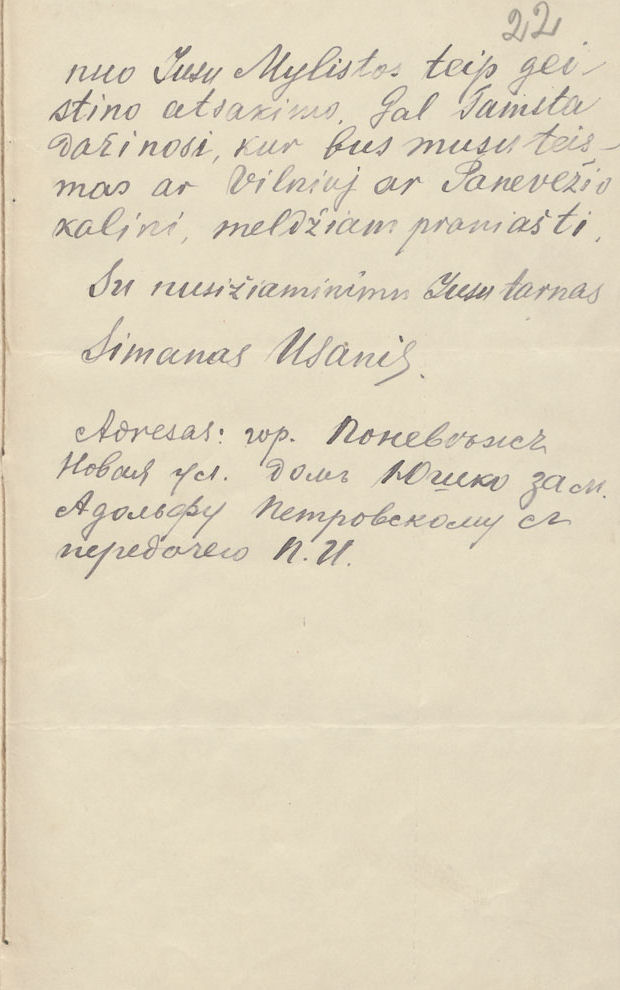 22
nuo Jusu Mylistos teip gei-
stino atsakimo. Gal Tamsta
dažinosi, kur bus musu teis-
mas ar Vilniuj ar Panevėžio
kalini, meldžiam praniašti,
Su nusižiaminimu Jusu tarnas
Simanas Usanis.
Adresas: гор. Поневѣжъ
Новая ул. домъ Юшко зам.
Адольфу Петровскому съ
передачею П. И.